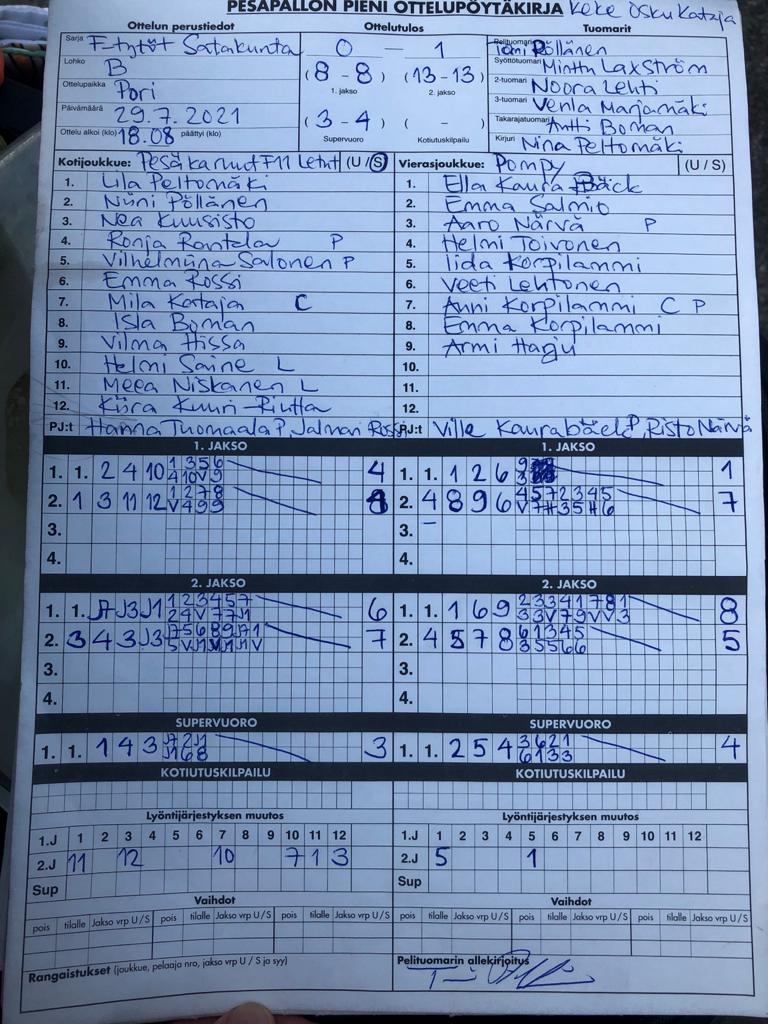 PESÄPALLON PIENI OTTELUPÖYTÄKIRJA Keke Osku Kataja
Ottelun perustiedot
Sarja F-tytöt Satakunta
Lohko B
Ottelupaikka Pori
Päivämäärä 29.7.2021
Ottelu alkoi (klo) 18.08 päättyi (klo)
Ottelutulos
0 - 1
(8 - 8) (13 - 13)
1. jakso 2. jakso
(3 - 4) ( - )
Supervuoro Kotiutuskilpailu
Tuomarit
Pelituomari Tomi Pöllänen
Syöttötuomari Minttu Laxström
2-tuomari Noora Lehti
3-tuomari Venla Marjamäki
Takarajatuomari Antti Boman
Kirjuri Nina Peltomäki
Kotijoukkue: Pesäkarhut F11 Lehti (U / S)
1. Lila Peltomäki
2. Niini Pöllänen
3. Nea Kuusisto
4. Ronja Rantala P
5. Vilhelmiina Salonen P
6. Emma Rossi
7. Mila Kataja C
8. Isla Boman
9. Vilma Hissa
10. Helmi Saine L
11. Meea Niskanen L
12. Kiira Kuuri-Riutta
PJ:t Hanna Tuomaala P, Jalmari Rossi
Vierasjoukkue: Pompy (U / S)
1. Ella Kaurabäck
2. Emma Salmio
3. Aaro Närvä P
4. Helmi Toivonen
5. Iida Korpilammi
6. Veeti Lehtonen
7. Anni Korpilammi C P
8. Emma Korpilammi
9. Armi Harju
10.
11.
12.
PJ:t Ville Kaurabäck P, Risto Närvä
1. JAKSO
1. 1. 2 4 10 1 3 5 6 4
4 10 V 9
2. 1 3 11 12 1 2 7 8
V 4 9 9
3.
4.
1. JAKSO
1. 1. 1 2 6 1
2. 4 8 9 6 4 5 7 2 3 4 5 7
3.
4.
2. JAKSO
1. 1. J7 J3 J1 1 2 3 4 5 7 6
2 4 V 7 7 J1
2. 3 4 3 J3 7
3.
4.
2. JAKSO
1. 1. 1 6 9 2 3 3 4 1 7 8 1 8
3 3 V 7 9 V V 3
2. 4 5 7 8 6 1 3 4 5 5
3 5 5 6 6
3.
4.
SUPERVUORO
1. 1. 1 4 3 J7 2 J1 3
J1 6 8
SUPERVUORO
1. 1. 2 5 4 3 6 2 1 4
6 1 3 3
KOTIUTUSKILPAILU
KOTIUTUSKILPAILU
Lyöntijärjestyksen muutos
1.J 1 2 3 4 5 6 7 8 9 10 11 12
2.J 11 12 10 7 1 3
Sup
Lyöntijärjestyksen muutos
1.J 1 2 3 4 5 6 7 8 9 10 11 12
2.J 5 1
Sup
Vaihdot
pois tilalle Jakso vrp U / S pois tilalle Jakso vrp U / S pois tilalle Jakso vrp U / S
Vaihdot
pois tilalle Jakso vrp U / S pois tilalle Jakso vrp U / S pois tilalle Jakso vrp U / S
Rangaistukset (joukkue, pelaaja nro, jakso vrp U / S ja syy)
Pelituomarin allekirjoitus